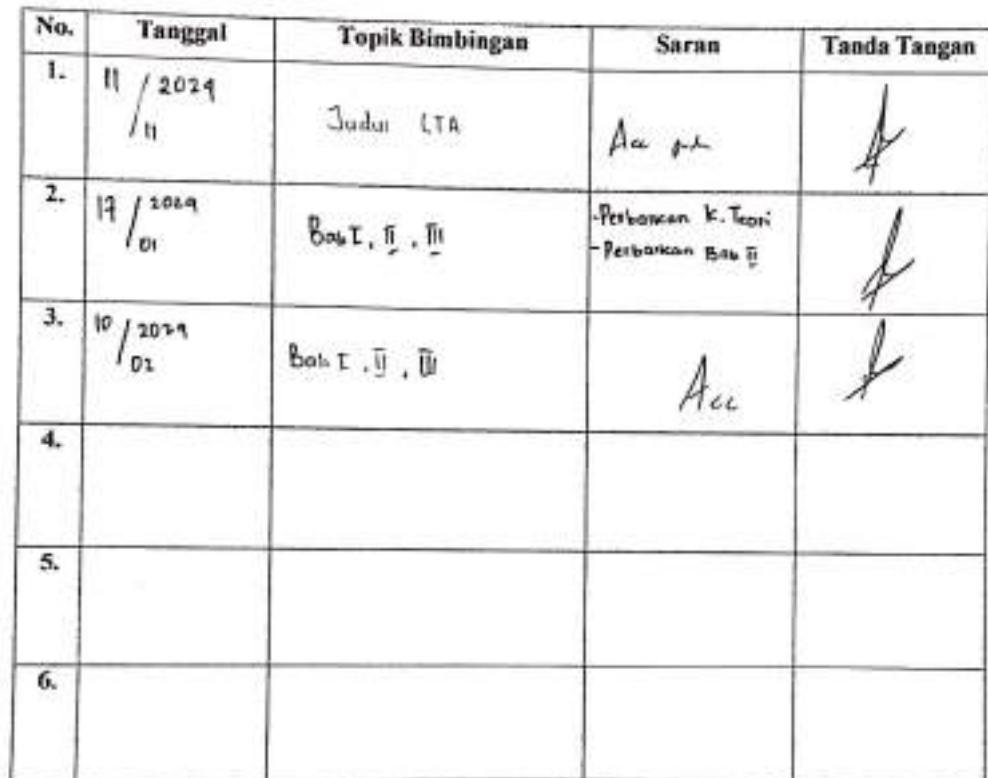 No. Tanggal Topik Bimbingan Saran Tanda Tangan
1. 11/11 2024 Judul LTA Acc
2. 17/01 2024 Bab I, II, III -Perbaikan K. Teori
-Perbaikan Bab II
3. 10/02 2024 Bab I, II, III Acc
4.
5.
6.